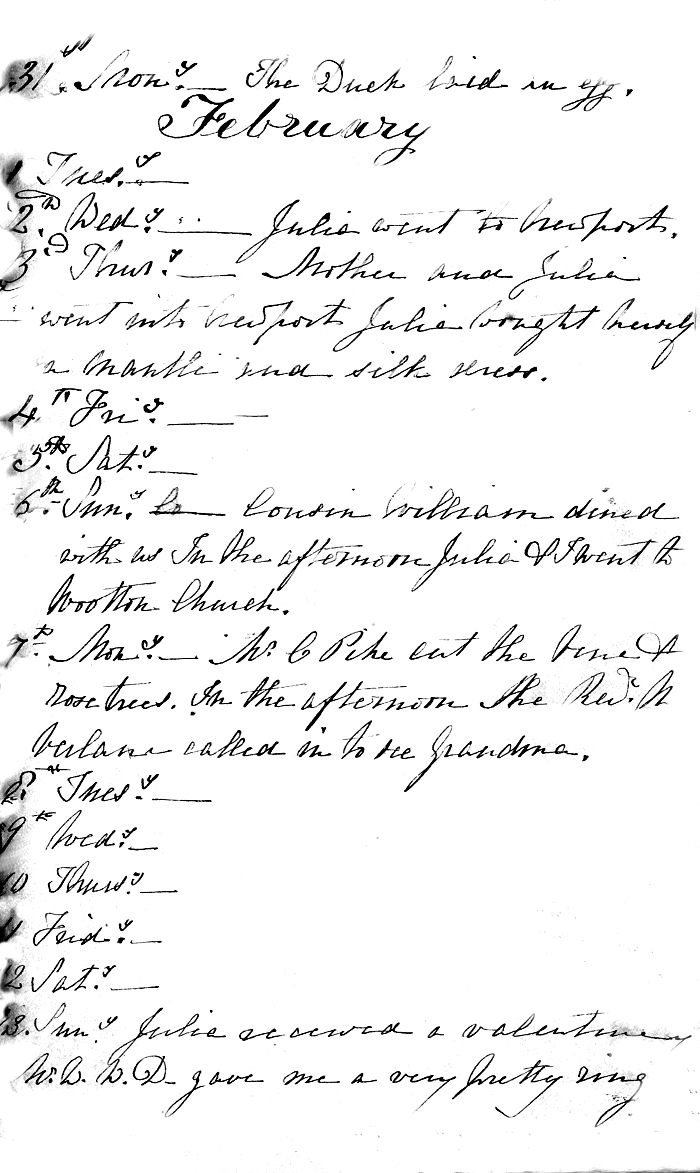 31st Mony. — The Duck laid an egg.
February
1 Tues.y —
2nd Wed.y — Julia went to Newport.
3rd Thur.y — Mother and Julia
went into Newport Julia bought herself
a mantle and silk dress.
4th Fri.y —
5th Sat.y —
6th Sun.y — Cousin William dined
with us In the afternoon Julia & I went to
Wootton Church.
7th Mon.y — Mr C Pike cut the vine &
rose trees. In the afternoon the Revd. W
called in to see Grandma.
8th Tues.y —
9th Wed.y —
10 Thurs.y —
11 Frid.y —
12 Sat.y —
13. Sun.y Julia received a valentine
gave me a very pretty ring